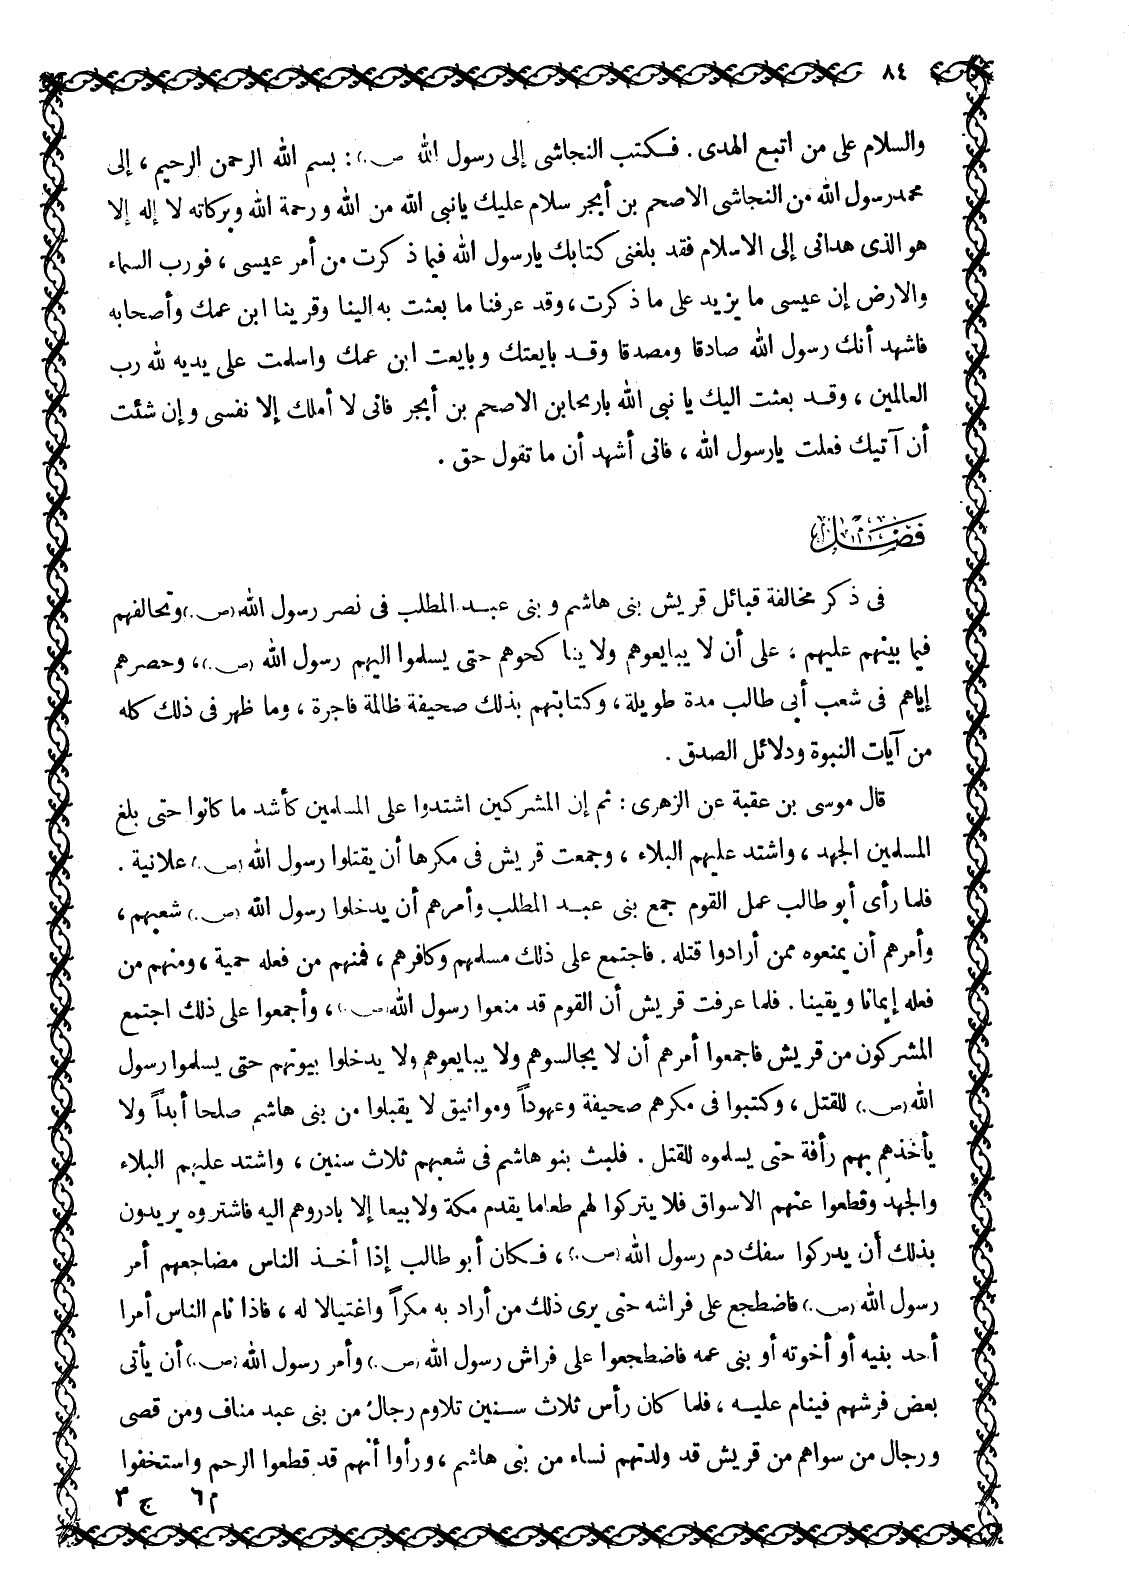 ٨٤
والسلام على من اتبع الهدى . فكتب النجاشى إلى رسول الله (ص.) : بسم الله الرحمن الرحيم ، إلى
محمد رسول الله من النجاشى الاصحم بن أبجر سلام عليك يانبى الله من الله ورحمة الله وبركاته لا إله إلا
هو الذى هدانى إلى الاسلام فقد بلغنى كتابك يارسول الله فيما ذكرت من أمر عيسى ، فورب السماء
والارض إن عيسى ما يزيد على ما ذكرت ، وقد عرفنا ما بعثت به الينا وقرينا ابن عمك وأصحابه
فاشهد أنك رسول الله صادقا ومصدقا وقد بايعتك وبايعت ابن عمك واسلمت على يديه لله رب
العالمين ، وقد بعثت اليك يا نبى الله باريحابن الاصحم بن أبجر فانى لا أملك إلا نفسى وإن شئت
أن آتيك فعلت يارسول الله ، فانى أشهد أن ما تقول حق .
فصل
فى ذكر مخالفة قبائل قريش بنى هاشم وبنى عبد المطلب فى نصر رسول الله (ص.) وتحالفهم
فيما بينهم عليهم ، على أن لا يبايعوهم ولا يناكحوهم حتى يسلموا اليهم رسول الله (ص.) ، وحصرهم
إياهم فى شعب أبى طالب مدة طويلة ، وكتابتهم بذلك صحيفة ظالمة فاجرة ، وما ظهر فى ذلك كله
من آيات النبوة ودلائل الصدق .
قال موسى بن عقبة عن الزهرى : ثم إن المشركين اشتدوا على المسلمين كأشد ما كانوا حتى بلغ
المسلمين الجهد ، واشتد عليهم البلاء ، وجمعت قريش فى مكرها أن يقتلوا رسول الله (ص.) علانية .
فلما رأى أبو طالب عمل القوم جمع بنى عبد المطلب وأمرهم أن يدخلوا رسول الله (ص.) شعبهم ،
وأمرهم أن يمنعوه ممن أرادوا قتله . فاجتمع على ذلك مسلمهم وكافرهم ، فمنهم من فعله حمية ، ومنهم من
فعله إيمانا ويقينا . فلما عرفت قريش أن القوم قد منعوا رسول الله (ص.) ، وأجمعوا على ذلك اجتمع
المشركون من قريش فاجمعوا أمرهم أن لا يجالسوهم ولا يبايعوهم ولا يدخلوا بيوتهم حتى يسلموا رسول
الله (ص.) للقتل ، وكتبوا فى مكرهم صحيفة وعهوداً ومواثيق لا يقبلوا من بنى هاشم صلحا أبداً ولا
يأخذهم بهم رأفة حتى يسلموه للقتل . فلبث بنو هاشم فى شعبهم ثلاث سنين ، واشتد عليهم البلاء
والجهد وقطعوا عنهم الاسواق فلا يتركوا لهم طعاما يقدم مكة ولا بيعا إلا بادروهم اليه فاشتروه يريدون
بذلك أن يدركوا سفك دم رسول الله (ص.) ، فكان أبو طالب إذا أخذ الناس مضاجعهم أمر
رسول الله (ص.) فاضطجع على فراشه حتى يرى ذلك من أراد به مكراً واغتيالا له ، فاذا نام الناس أمرا
أحد بفيه أو أخوته أو بنى عمه فاضطجعوا على فراش رسول الله (ص.) وأمر رسول الله (ص.) أن يأتى
بعض فرشهم فينام عليه ، فلما كان رأس ثلاث سنين تلاوم رجال من بنى عبد مناف ومن قصى
ورجال من سواهم من قريش قد ولدتهم نساء من بنى هاشم ، ورأوا أنهم قد قطعوا الرحم واستخفوا
م٦ ج ٣